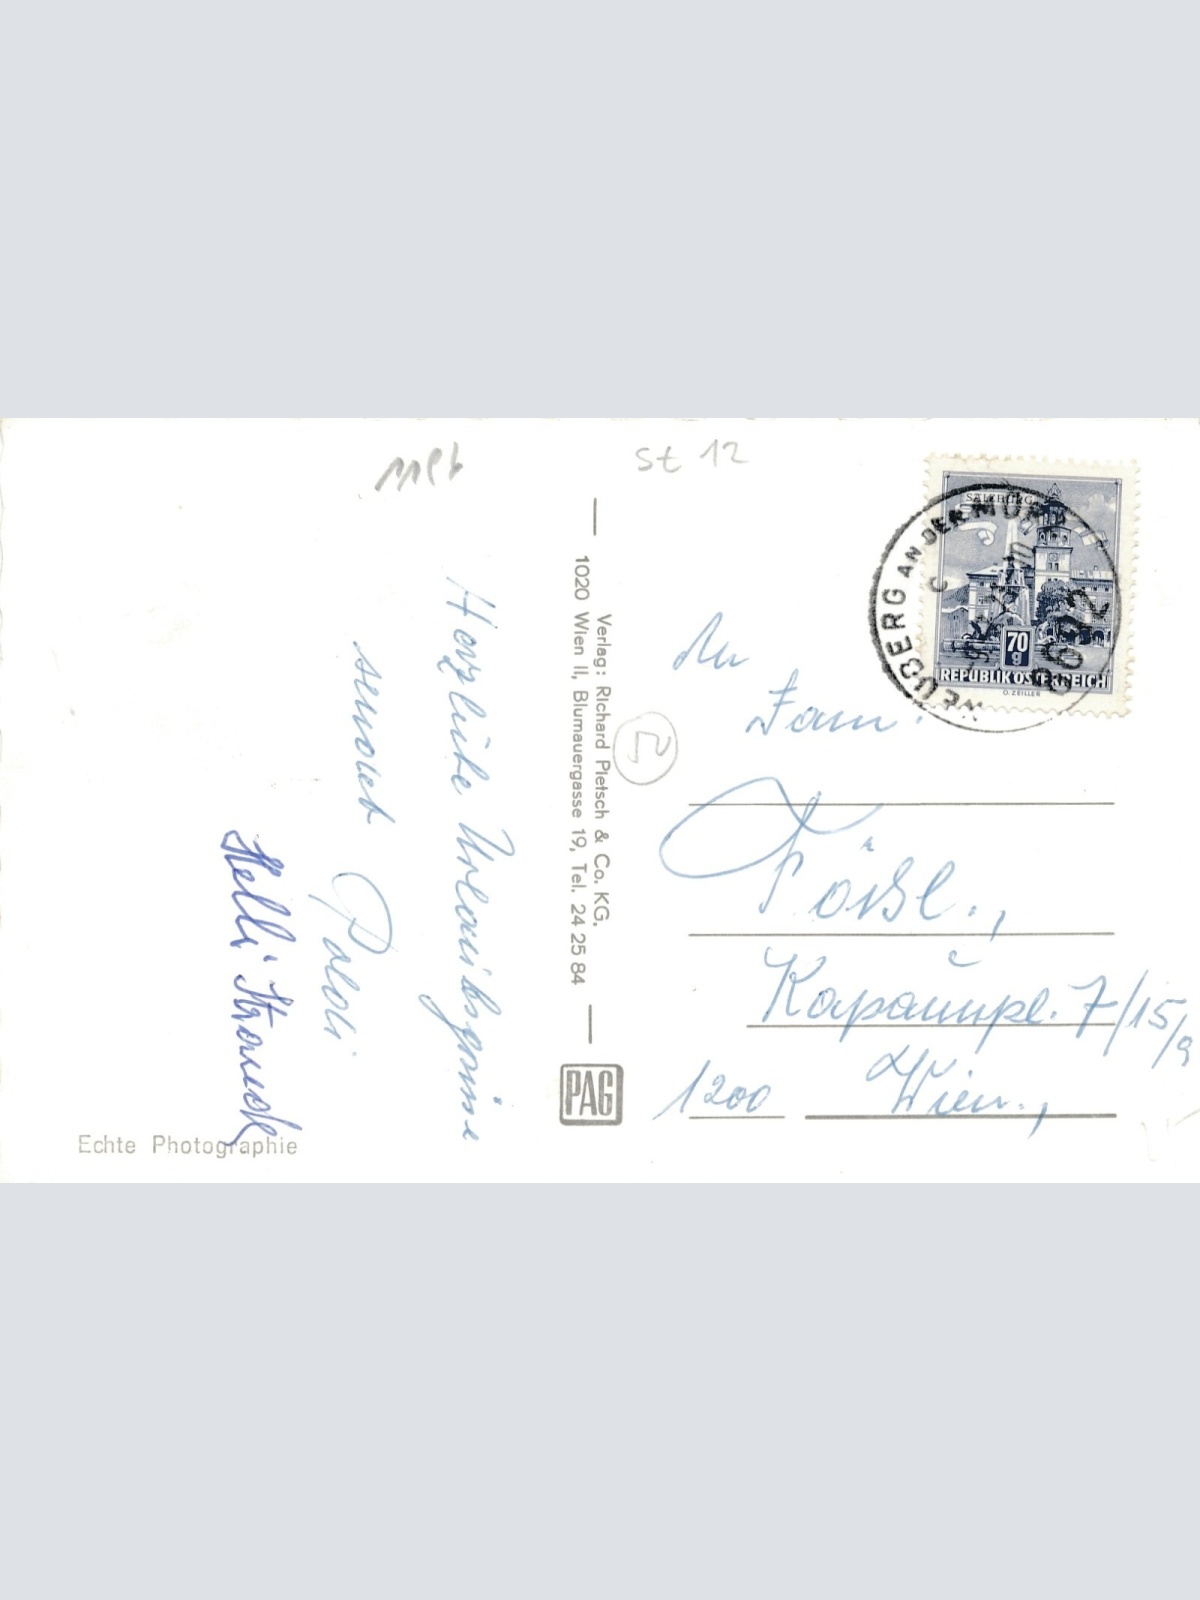 St 12
Herzliche Urlaubsgrüsse
sendet Poldi
Helli Stranek
Echte Photographie
Verlag: Richard Pietsch & Co. KG.
1020 Wien II, Blumauergasse 19, Tel. 24 25 84
PAG
SALZBURG
70 g
REPUBLIK ÖSTERREICH
O. ZEILLER
NEUBERG AN DER MÜRZ
8692
An
Fam.
Kapaunpl. 7/15/9
1200 Wien.,